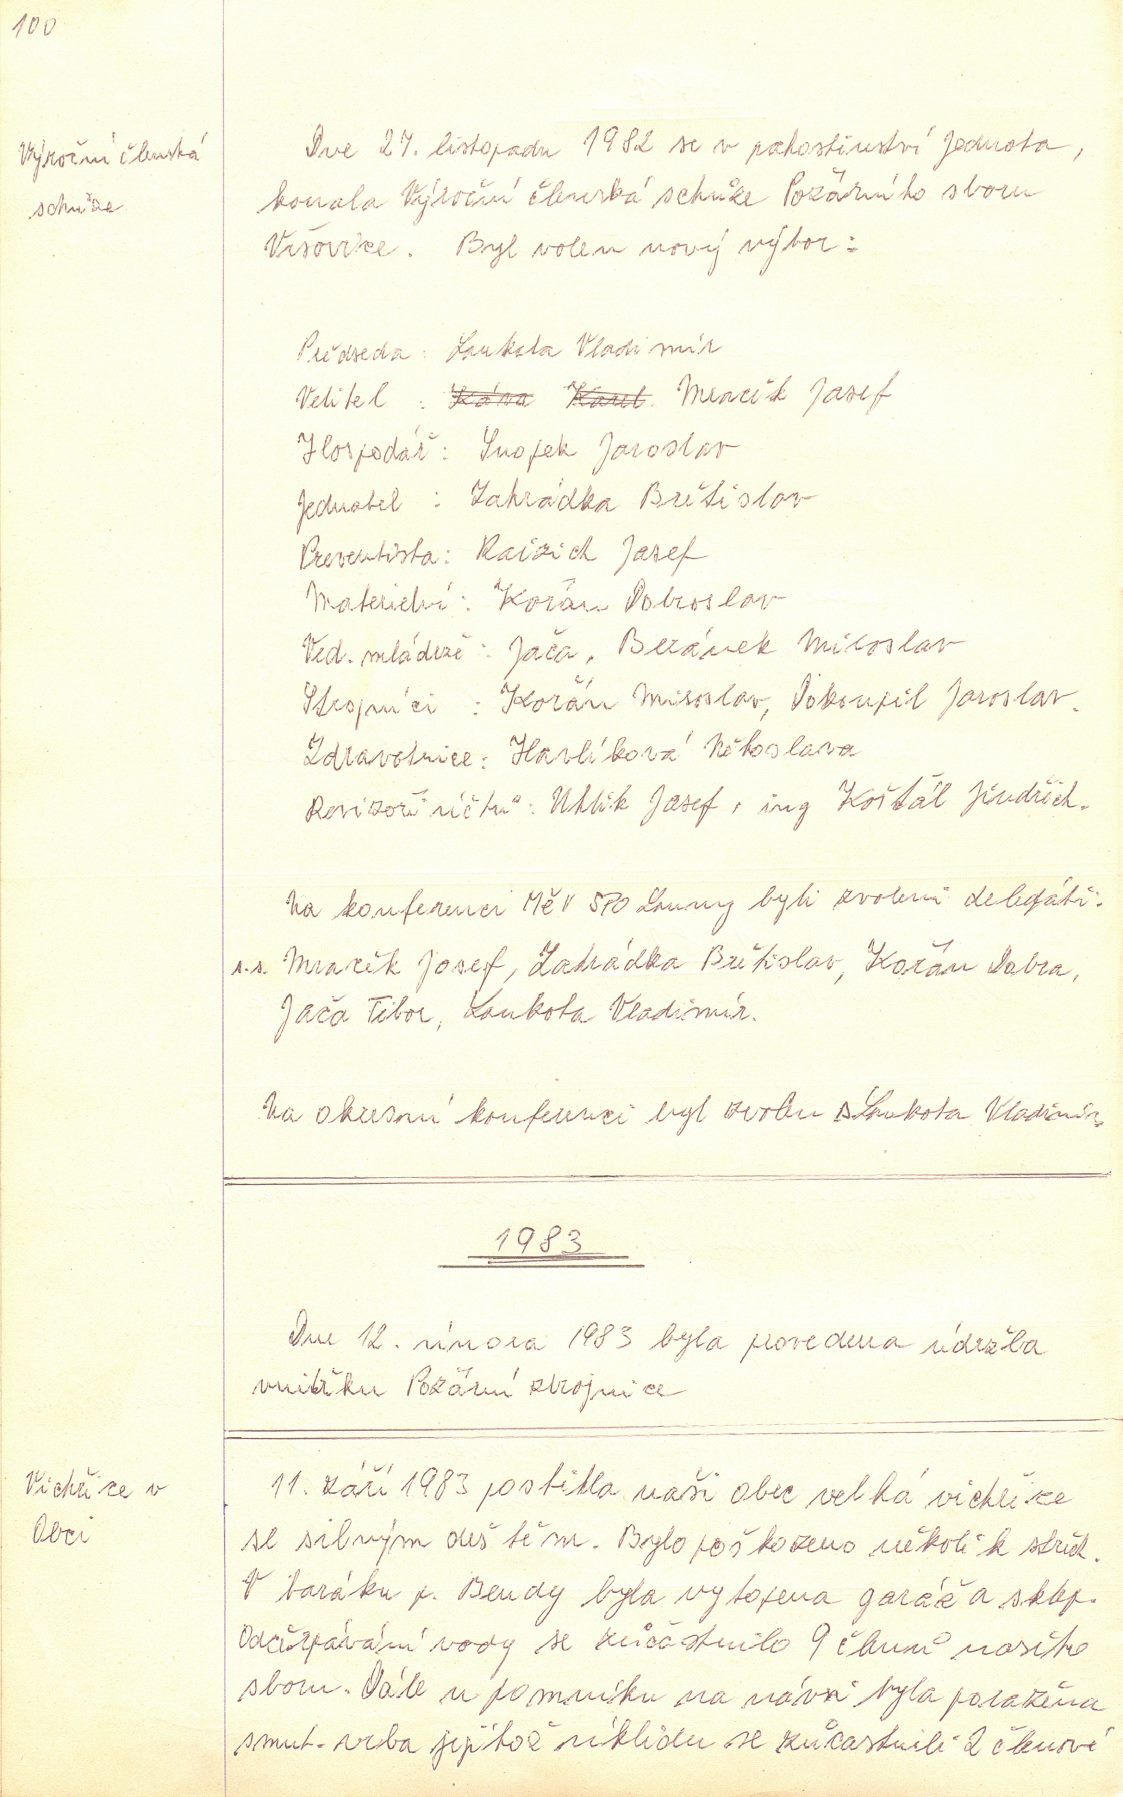 100
Výroční členská
schůze
Dne 27. listopadu 1982 se v pohostinství Jednota,
konala Výroční členská schůze Požárního sboru
Vršovice. Byl volen nový výbor:
Předseda: Loukota Vladimír
Velitel : Káva Karel Mraček Josef
Hospodář: Snopek Jaroslav
Jednatel : Zahrádka Břetislav
Preventista: Raizich Josef
Materielní: Kořán Dobroslav
Ved. mládeže: Jača, Beránek Miloslav
Strojníci : Kořán Miroslav, Dokoupil Jaroslav.
Zdravotnice: Havlíková Květoslava
Revizoři účtů: Uhlík Josef, ing Košťál Jindřich.
Na konferenci MěV SPO Louny byli zvoleni delegáti.
s.s. Mraček Josef, Zahrádka Břetislav, Kořán Dobra,
Jača Tibor, Loukota Vladimír.
Na okresní konferenci byl zvolen s Loukota Vladimír.
1983
Dne 12. února 1983 byla provedena údržba
vnitřku Požární zbrojnice
Vichřice v
Obci
11. září 1983 postihla naši obec velká vichřice
se silným deštěm. Bylo poškozeno několik střech.
V baráku p. Bendy byla vytopena garáž a sklep.
Odčerpávání vody se zůčastnilo 9 členů našeho
sboru. Dále u pomníku na návsi byla poražena
smut. vrba jejítož úklidu se zůčastnili 2 členové